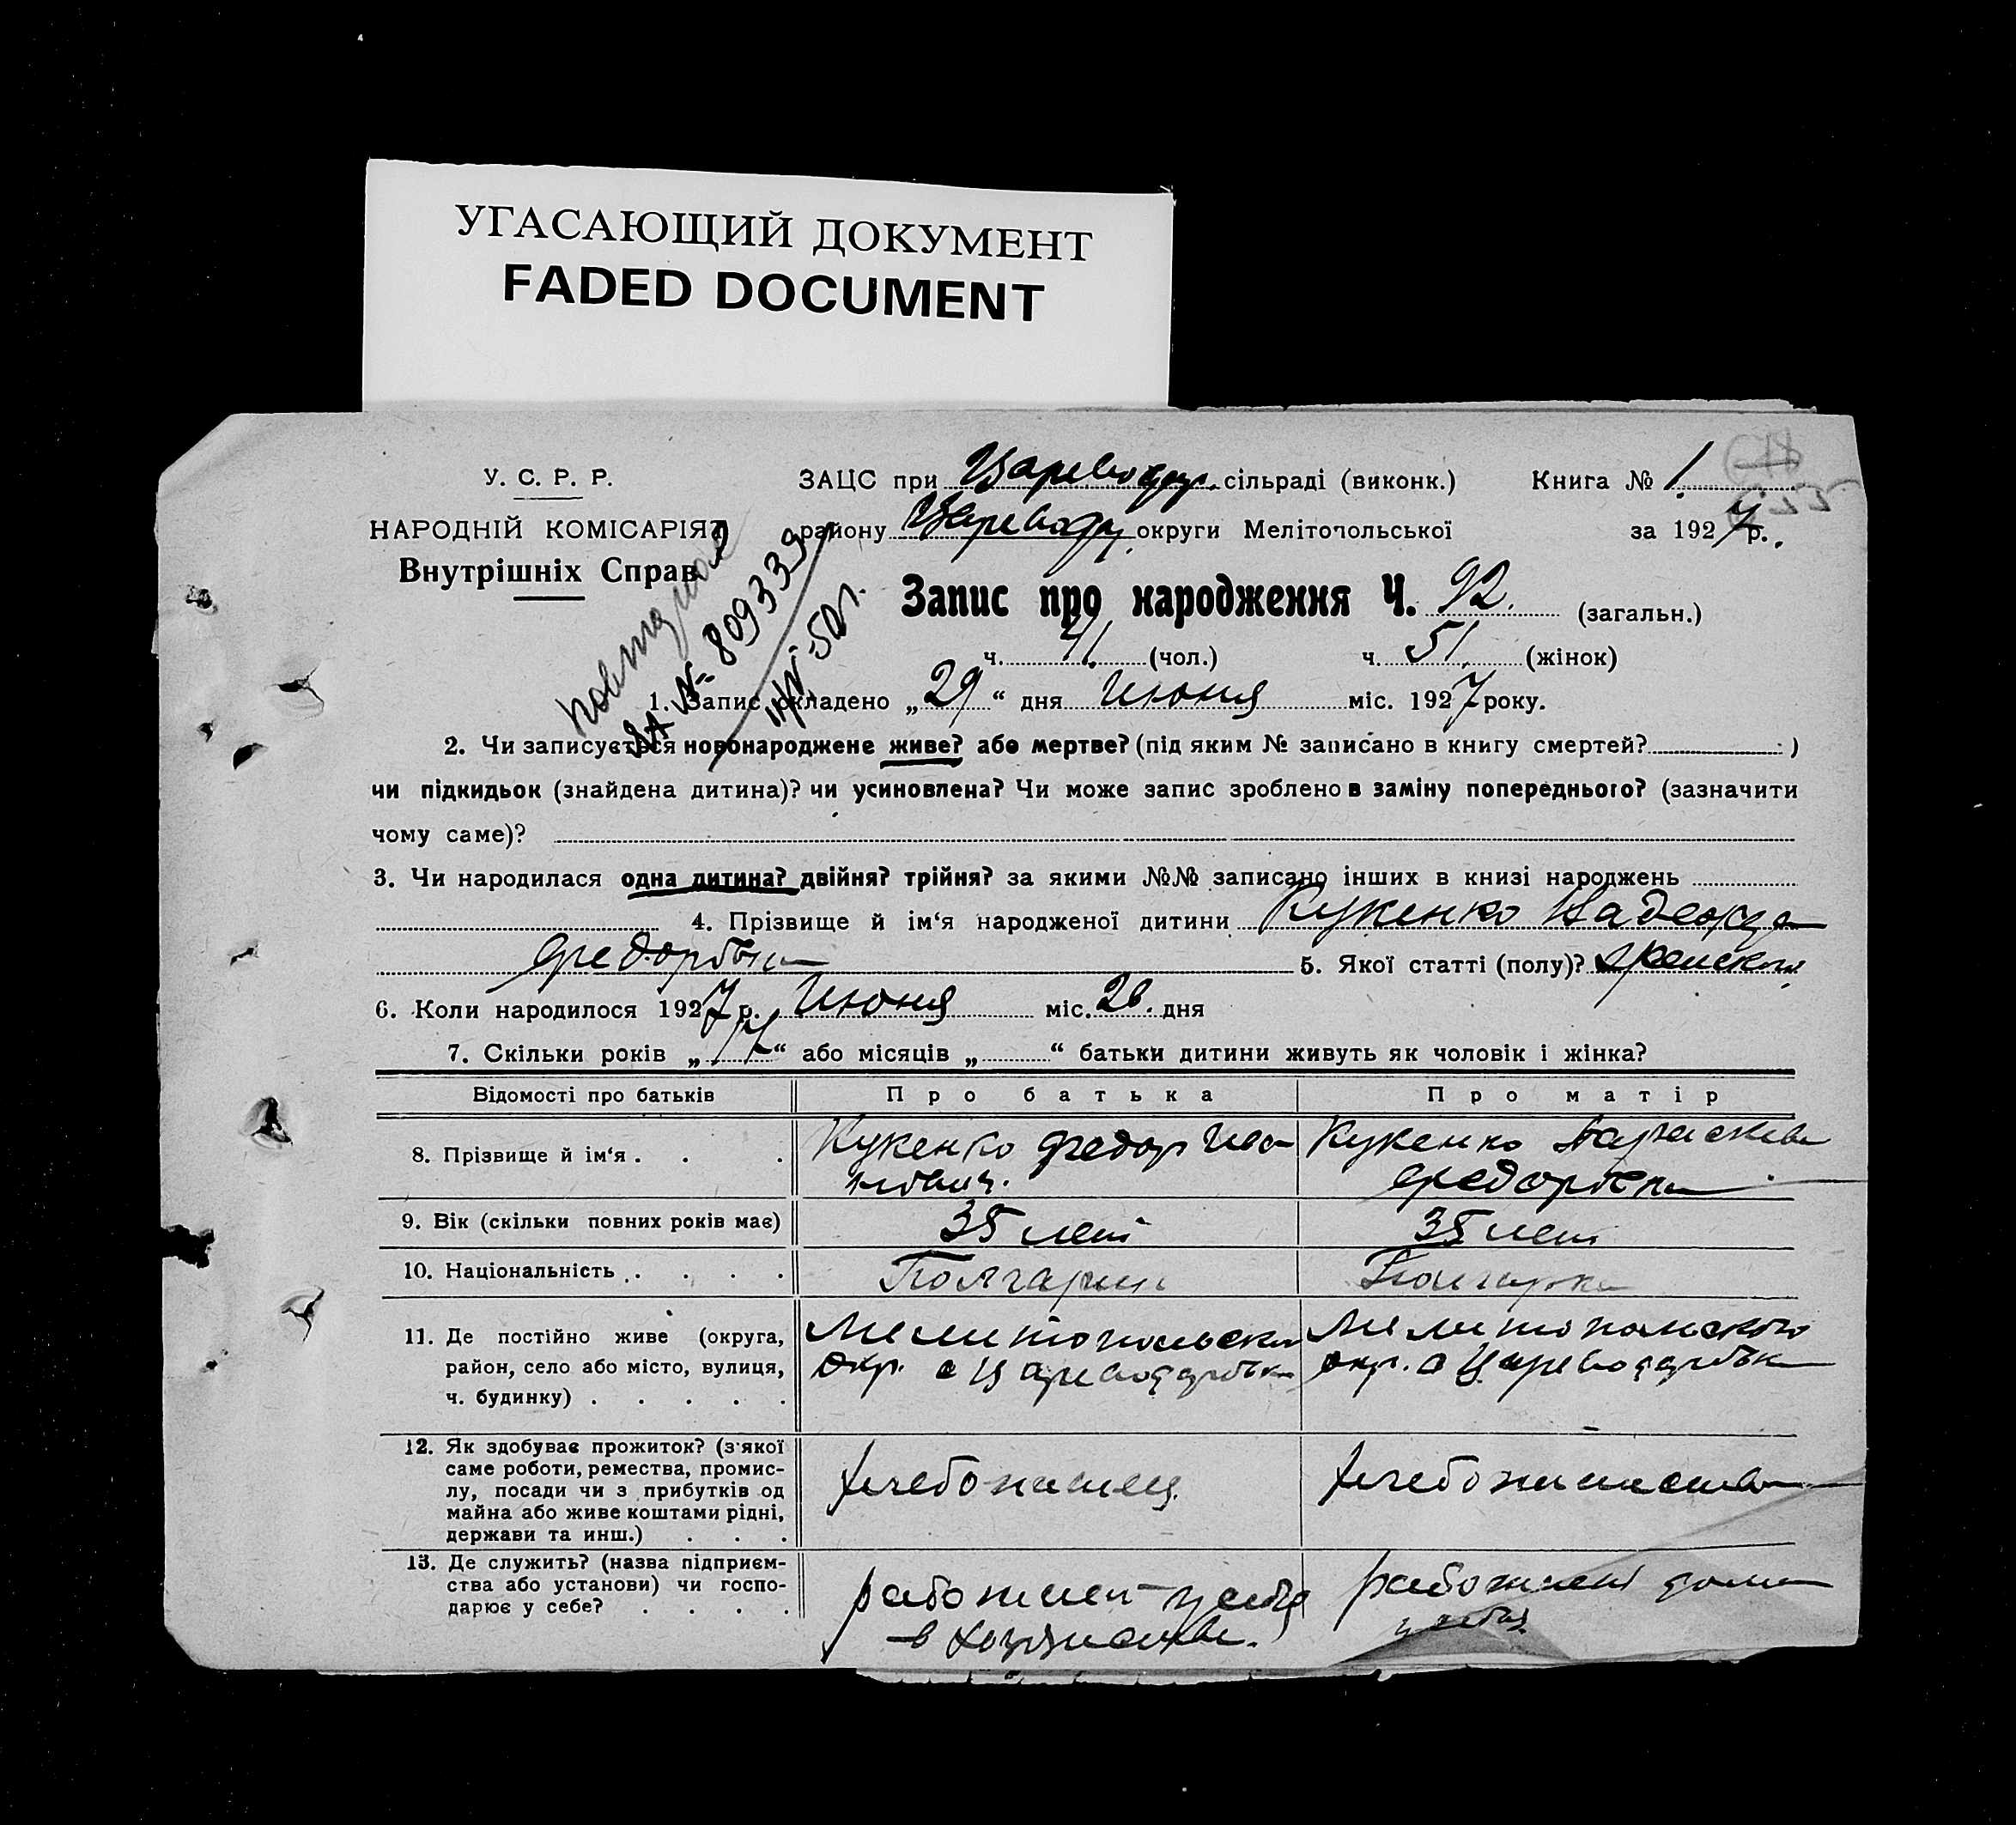 УГАСАЮЩИЙ ДОКУМЕНТ
FADED DOCUMENT
У. С. Р. Р.
НАРОДНІЙ КОМІСАРІЯТ
Внутрішніх Справ
ЗАЦС при Цареводар. сільраді (виконк.) Книга № 1.
району Цареводар. округи Мелітопольської за 1927 р.
Запис про народження Ч. 92. (загальн.)
ч. 41. (чол.) ч. 51. (жінок)
повторное
ЯА № 809339
11/IV-50 г.
1. Запис складено „29“ дня Июня міс. 1927 року.
2. Чи записується новонароджене живе? або мертве? (під яким № записано в книгу смертей? )
чи підкидьок (знайдена дитина)? чи усиновлена? Чи може запис зроблено в заміну попереднього? (зазначити
чому саме)?
3. Чи народилася одна дитина? двійня? трійня? за якими №№ записано інших в книзі народжень
4. Прізвище й ім‘я народженої дитини Кукенко Надежда
Федоровна 5. Якої статті (полу)? женской
6. Коли народилося 1927 р. Июня міс. 26. дня
7. Скільки років „17“ або місяців „ “ батьки дитини живуть як чоловік і жінка?
Відомості про батьків Про батька Про матір
8. Прізвище й ім‘я . . . Кукенко Федор Ива Кукенко Параскева
нович. Федоровна
9. Вік (скільки повних років має) 35 лет 35 лет
10. Національність . . . . . Болгарин Болгарка
11. Де постійно живе (округа, район, село або місто, вулиця, ч. будинку) . . . . . Мелитопольской Мелитопольского
окр. с Цареводаровка окр. с Цареводаровка
12. Як здобуває прожиток? (з'якої
саме роботи, ремества, промис-
лу, посади чи з прибутків од
майна або живе коштами рідні,
держави та инш.) . . . хлебопашец. хлебопашество
13. Де служить? (назва підприєм-
ства або установи) чи госпо-
дарює у себе? . . . . работает у себя работает дома
в хозяйстве. у себя.